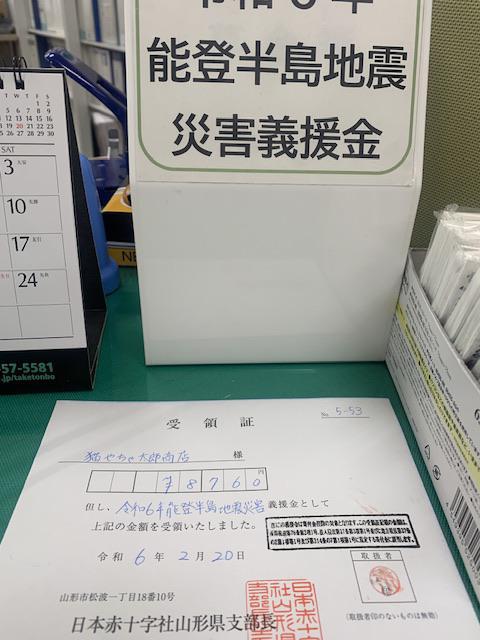 令和6年
能登半島地震
災害義援金
SAT
3
10
17
24
-57-5581
.jp/taketonbo
NE
受領証
No. 5-53
猫やちゃ太郎商店 様
¥8760円
但し、令和6年能登半島地震災害義援金として
上記の金額を受領いたしました。
令和 6年 2月 20日
取扱者
(取扱者印のないものは無効)
山形市松波一丁目18番10号
日本赤十字社山形県支部長